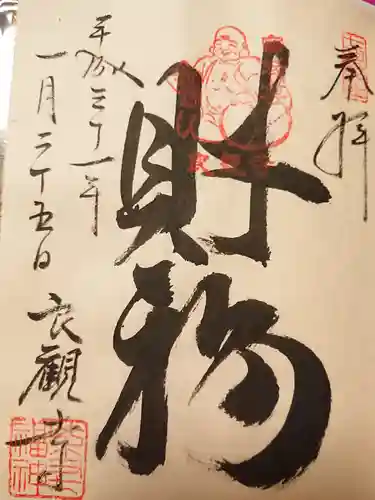 奉拝
財福
平成三十一年
一月二十五日
良観寺